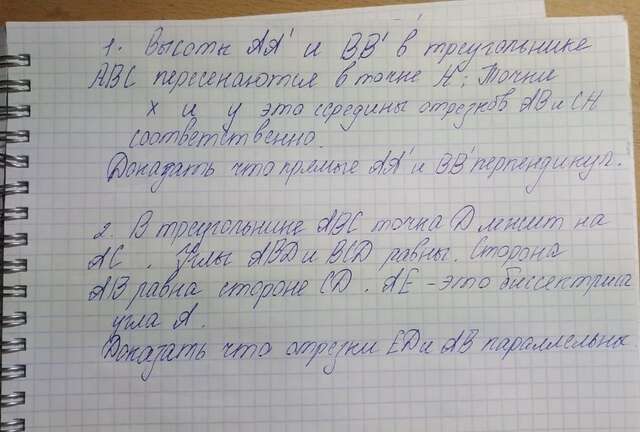 1. Высоты AA' и BB' в треугольнике
ABC пересекаются в точке H; Точки
x и y это середины отрезков AB и CH
соответственно.
Доказать что прямые AA' и BB' перпендикул.
2. В треугольнике ABC точка D лежит на
AC. Углы ABD и BCD равны. Сторона
AB равна стороне CD. AE - это биссектриса
угла A.
Доказать что отрезки ED и AB параллельны.